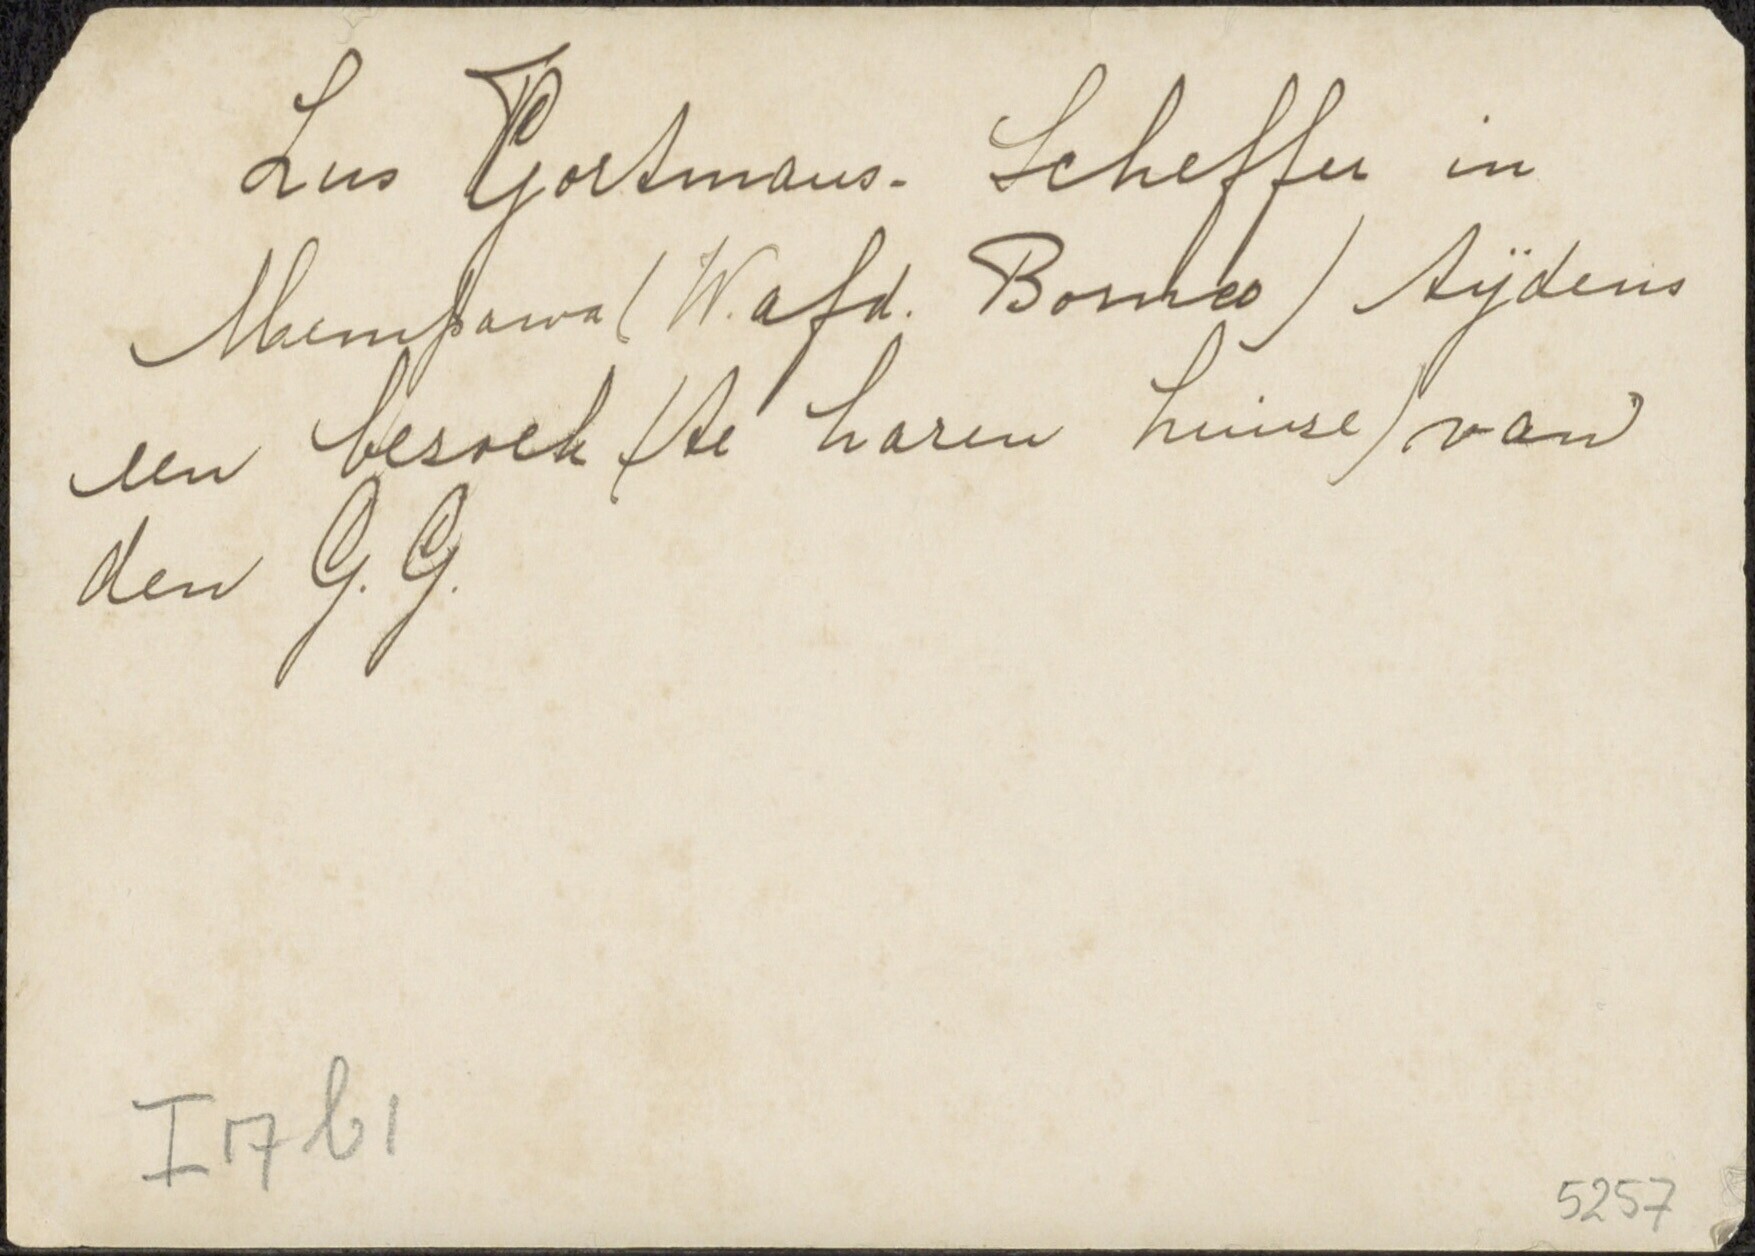 Lus Gortmans-Scheffer in
Mempawa (W. afd. Borneo) tijdens
een bezoek (te haren huize) van
den G. G.
I 17 b1
5257